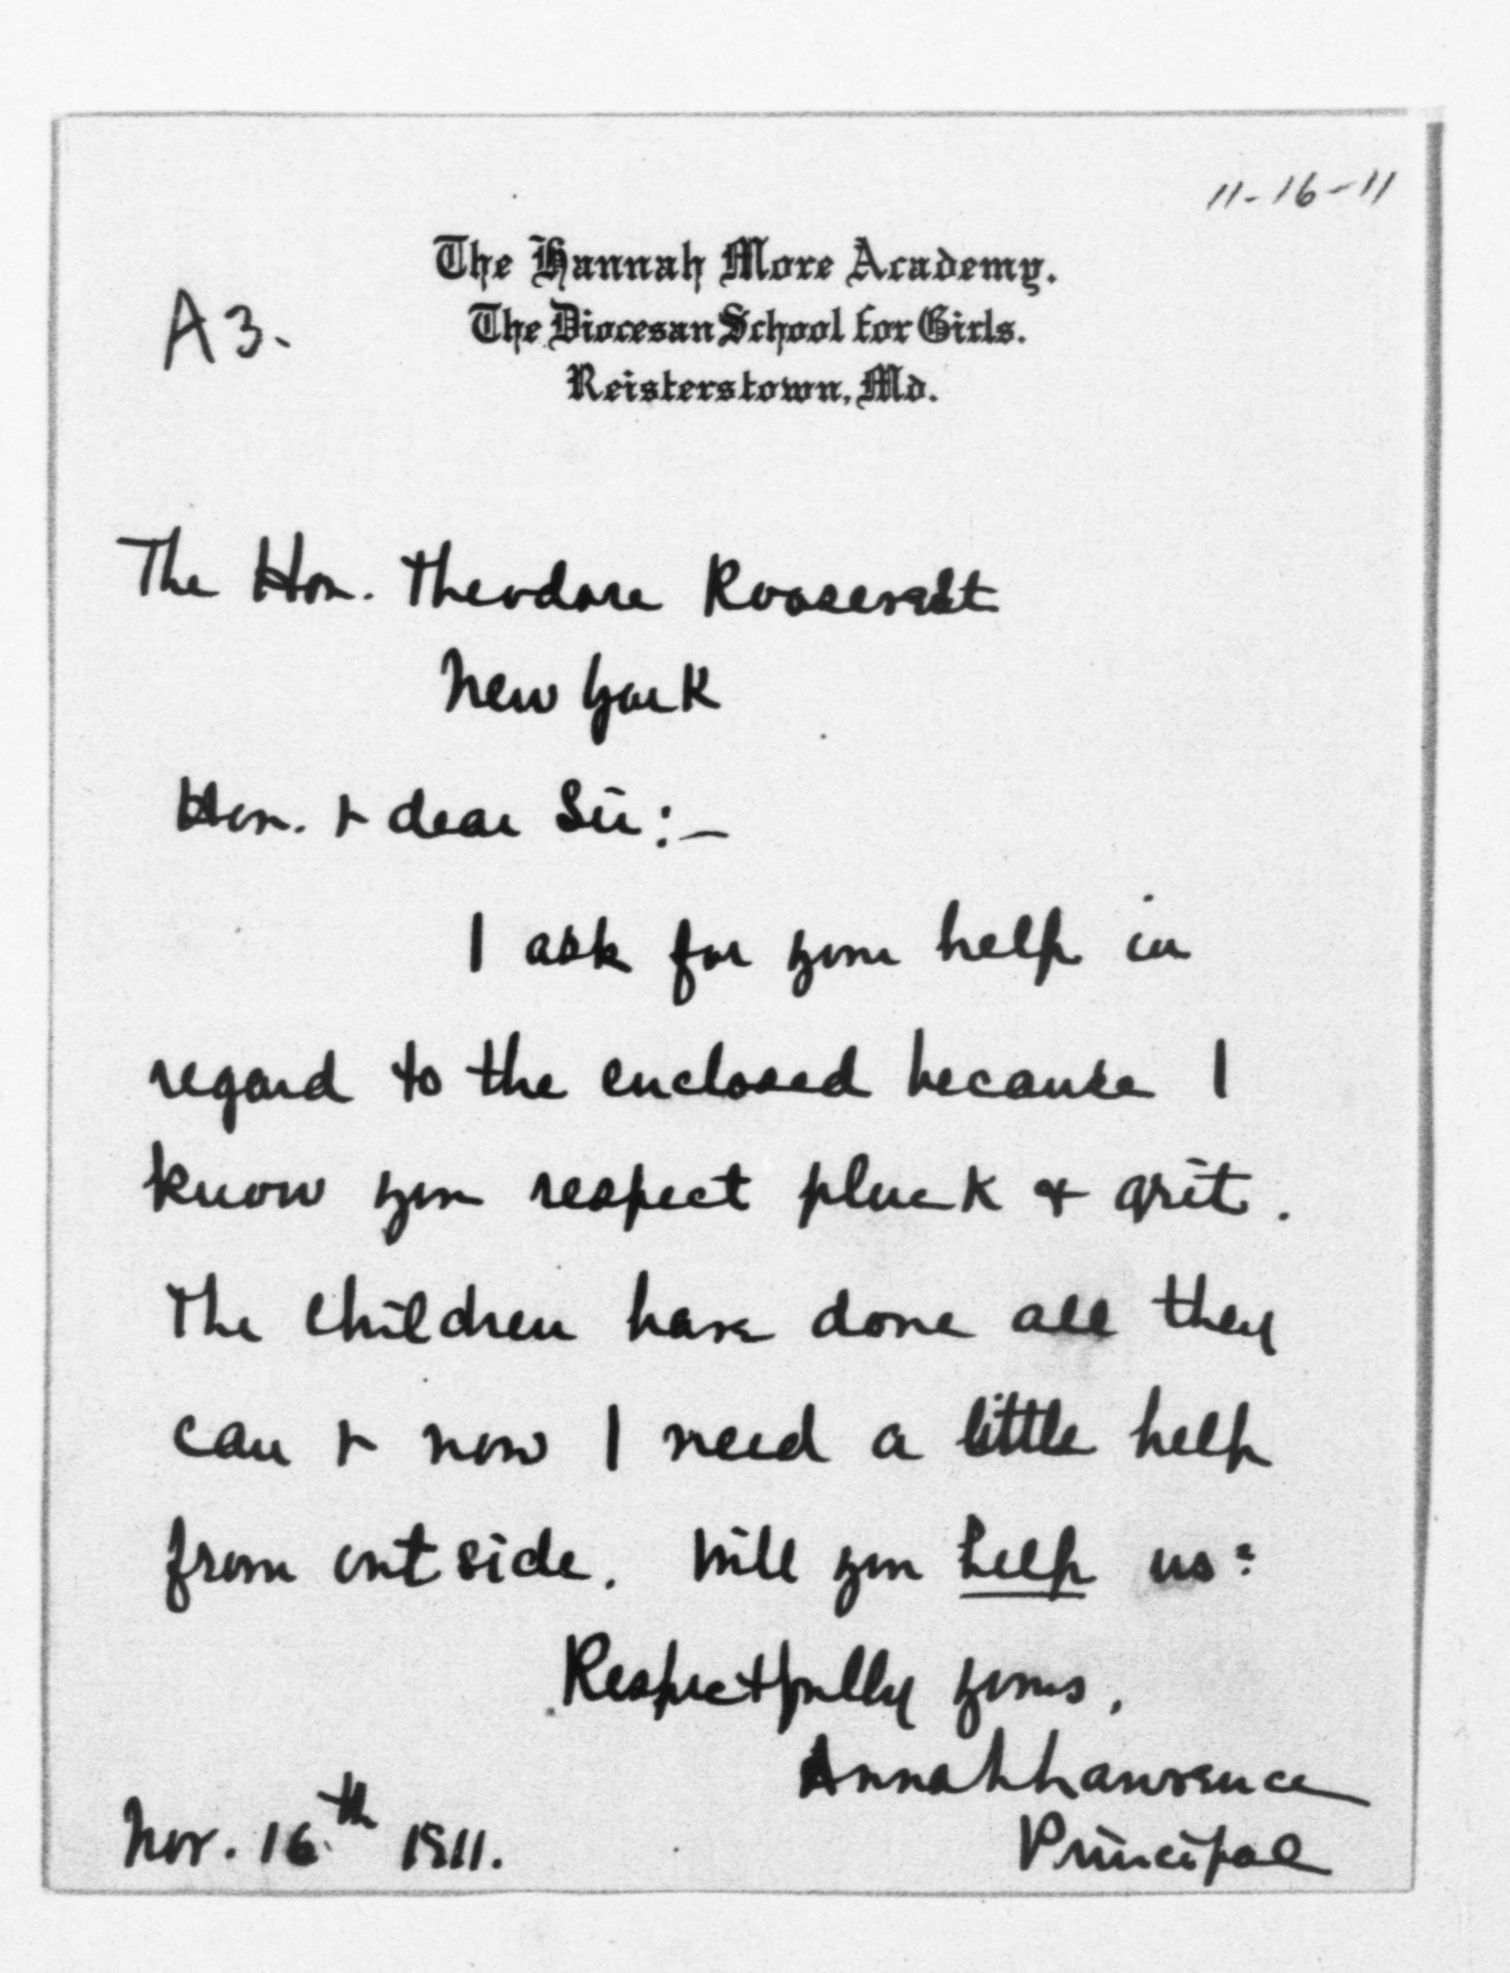 11-16-11
The Hannah More Academy.
A3.
The Diocesan School for Girls.
Reisterstown, Md.
The Hon. Theodore Roosevelt
New York
Hon. & dear Sir:—
I ask for your help in
regard to the enclosed because I
know you respect pluck & grit.
The children have done all they
can & now I need a little help
from outside. Will you help us?
Respectfully yours,
Anna L Lawrence
Principal
Nov. 16th 1911.